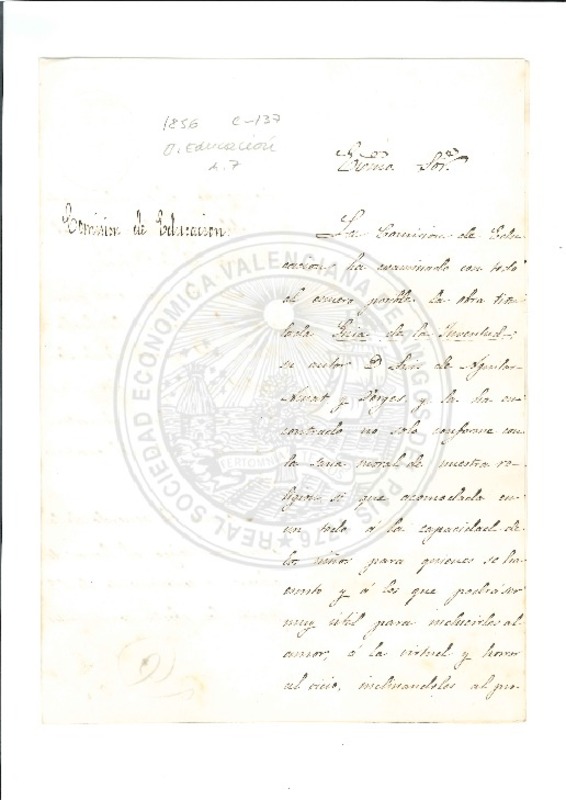 1856 C-137
O. Educación
n. 7
Excmo. Sor.
Comision de Educacion.
La Comision de Edu
cacion, ha examinado con todo
el esmero posible la obra titu
lada Guia de la Juventud;
su autor D. Luis de Aguilar
y Borges y la ha en
contrado no solo conforme con
la sana moral de nuestra re-
ligion, si que acomodada en
un todo á la capacidad de
los niños para quienes se ha
escrito y á los que podrá ser
muy útil para inducirles al
amor, á la virtud y horror
al vicio, inclinandoles al pro-
REAL SOCIEDAD ECONOMICA VALENCIANA DE AMIGOS DEL PAIS 1776